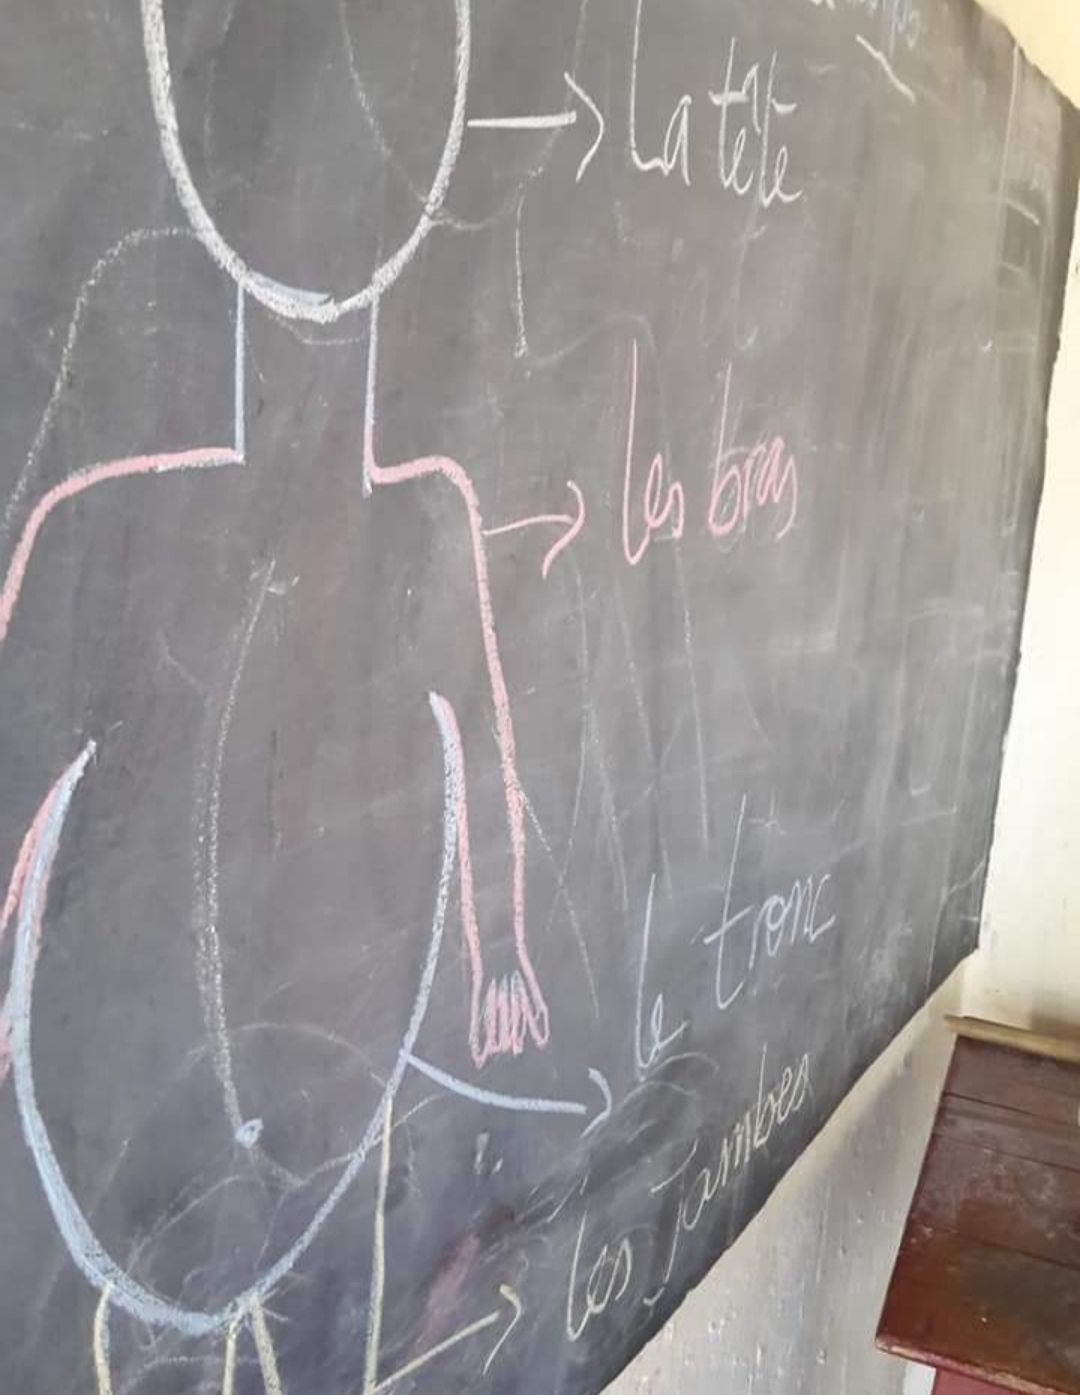 La tête
les bras
le tronc
les jambes